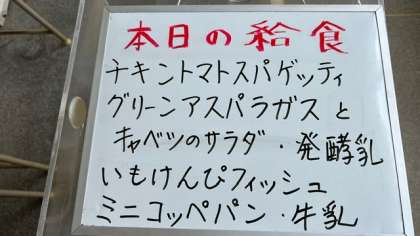 本日の給食
チキントマトスパゲッティ
グリーンアスパラガスと
キャベツのサラダ・発酵乳
いもけんぴフィッシュ
ミニコッペパン・牛乳